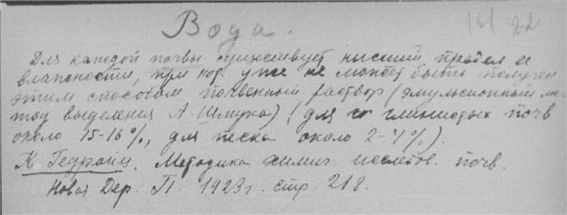 Вода.
22
Для каждой почвы существует низший предел ее
влажности, при кот. уже не может быть получен
этим способом почвенный раствор (эмульсионный ме-
тод выделения А Шмука) (для глинистых почв
около 15-16%, для песка около 2-4%).
К Гедройц. Методика химич. исследов. почв.
Новая Дер. П. 1923 г. стр. 218.